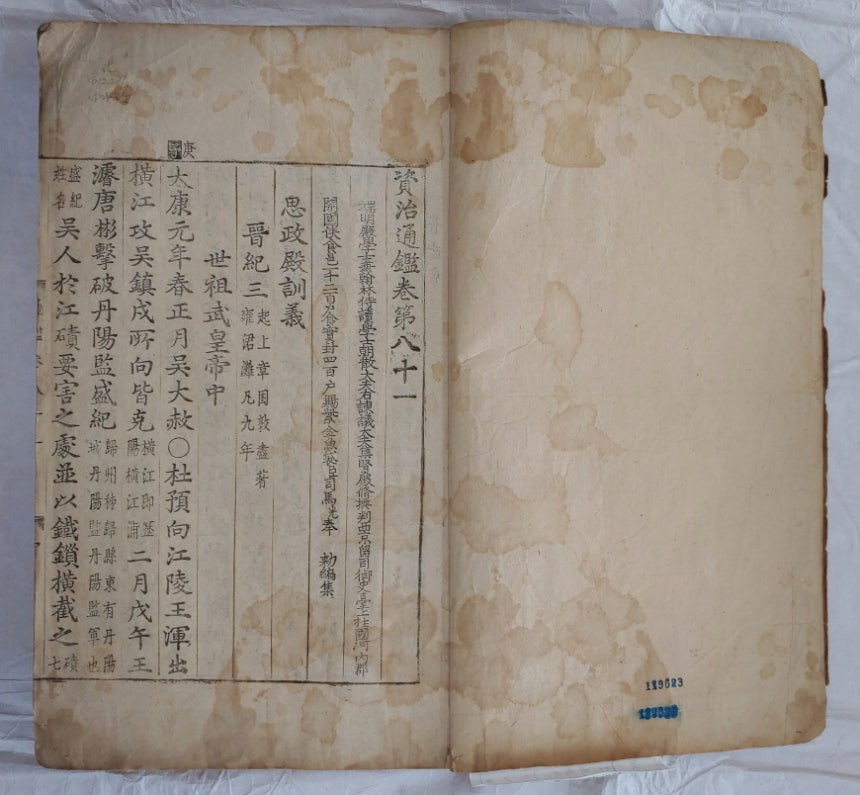 資治通鑑卷第八十一
端明殿學士兼翰林侍讀學士朝散大夫右諫議大夫集賢殿脩撰判西京留司御史臺上柱國河內郡
開國侯食邑一千三百戶食實封四百戶賜紫金魚袋臣司馬光奉 勑編集
思政殿訓義
晉紀三 起上章困敦盡著
雍涒灘凡九年
世祖武皇帝中
庚
子
太康元年春正月吳大赦○杜預向江陵王渾出
橫江攻吳鎮戍所向皆克 橫江即歷
陽橫江浦 二月戊午王
濬唐彬擊破丹陽監盛紀 歸州秭歸縣東有丹陽
城丹陽監丹陽監軍也
盛紀
姓名 吳人於江磧要害之處並以鐵鎖橫截之 磧
七
119623